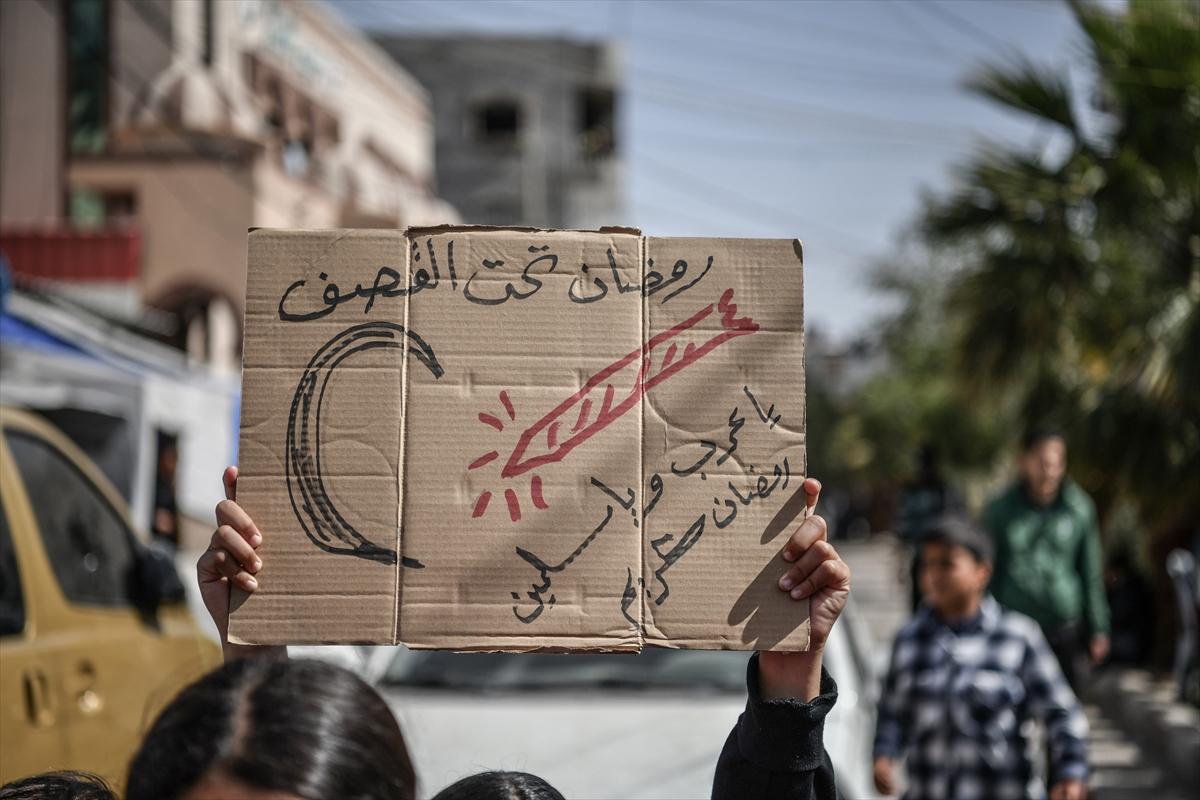 رمضان تحت القصف
يا عرب ويا مسلمين
رمضان كريم